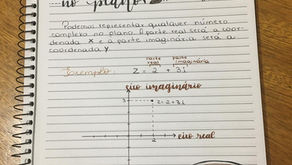 no plano
Podemos representar qualquer número
complexo no plano. A parte real será a coor-
denada X e a parte imaginária será a
coordenada Y
parte real
parte imaginária
Exemplo: Z = 2 + 3i
eixo imaginário
3
z=2+3i
eixo real
2